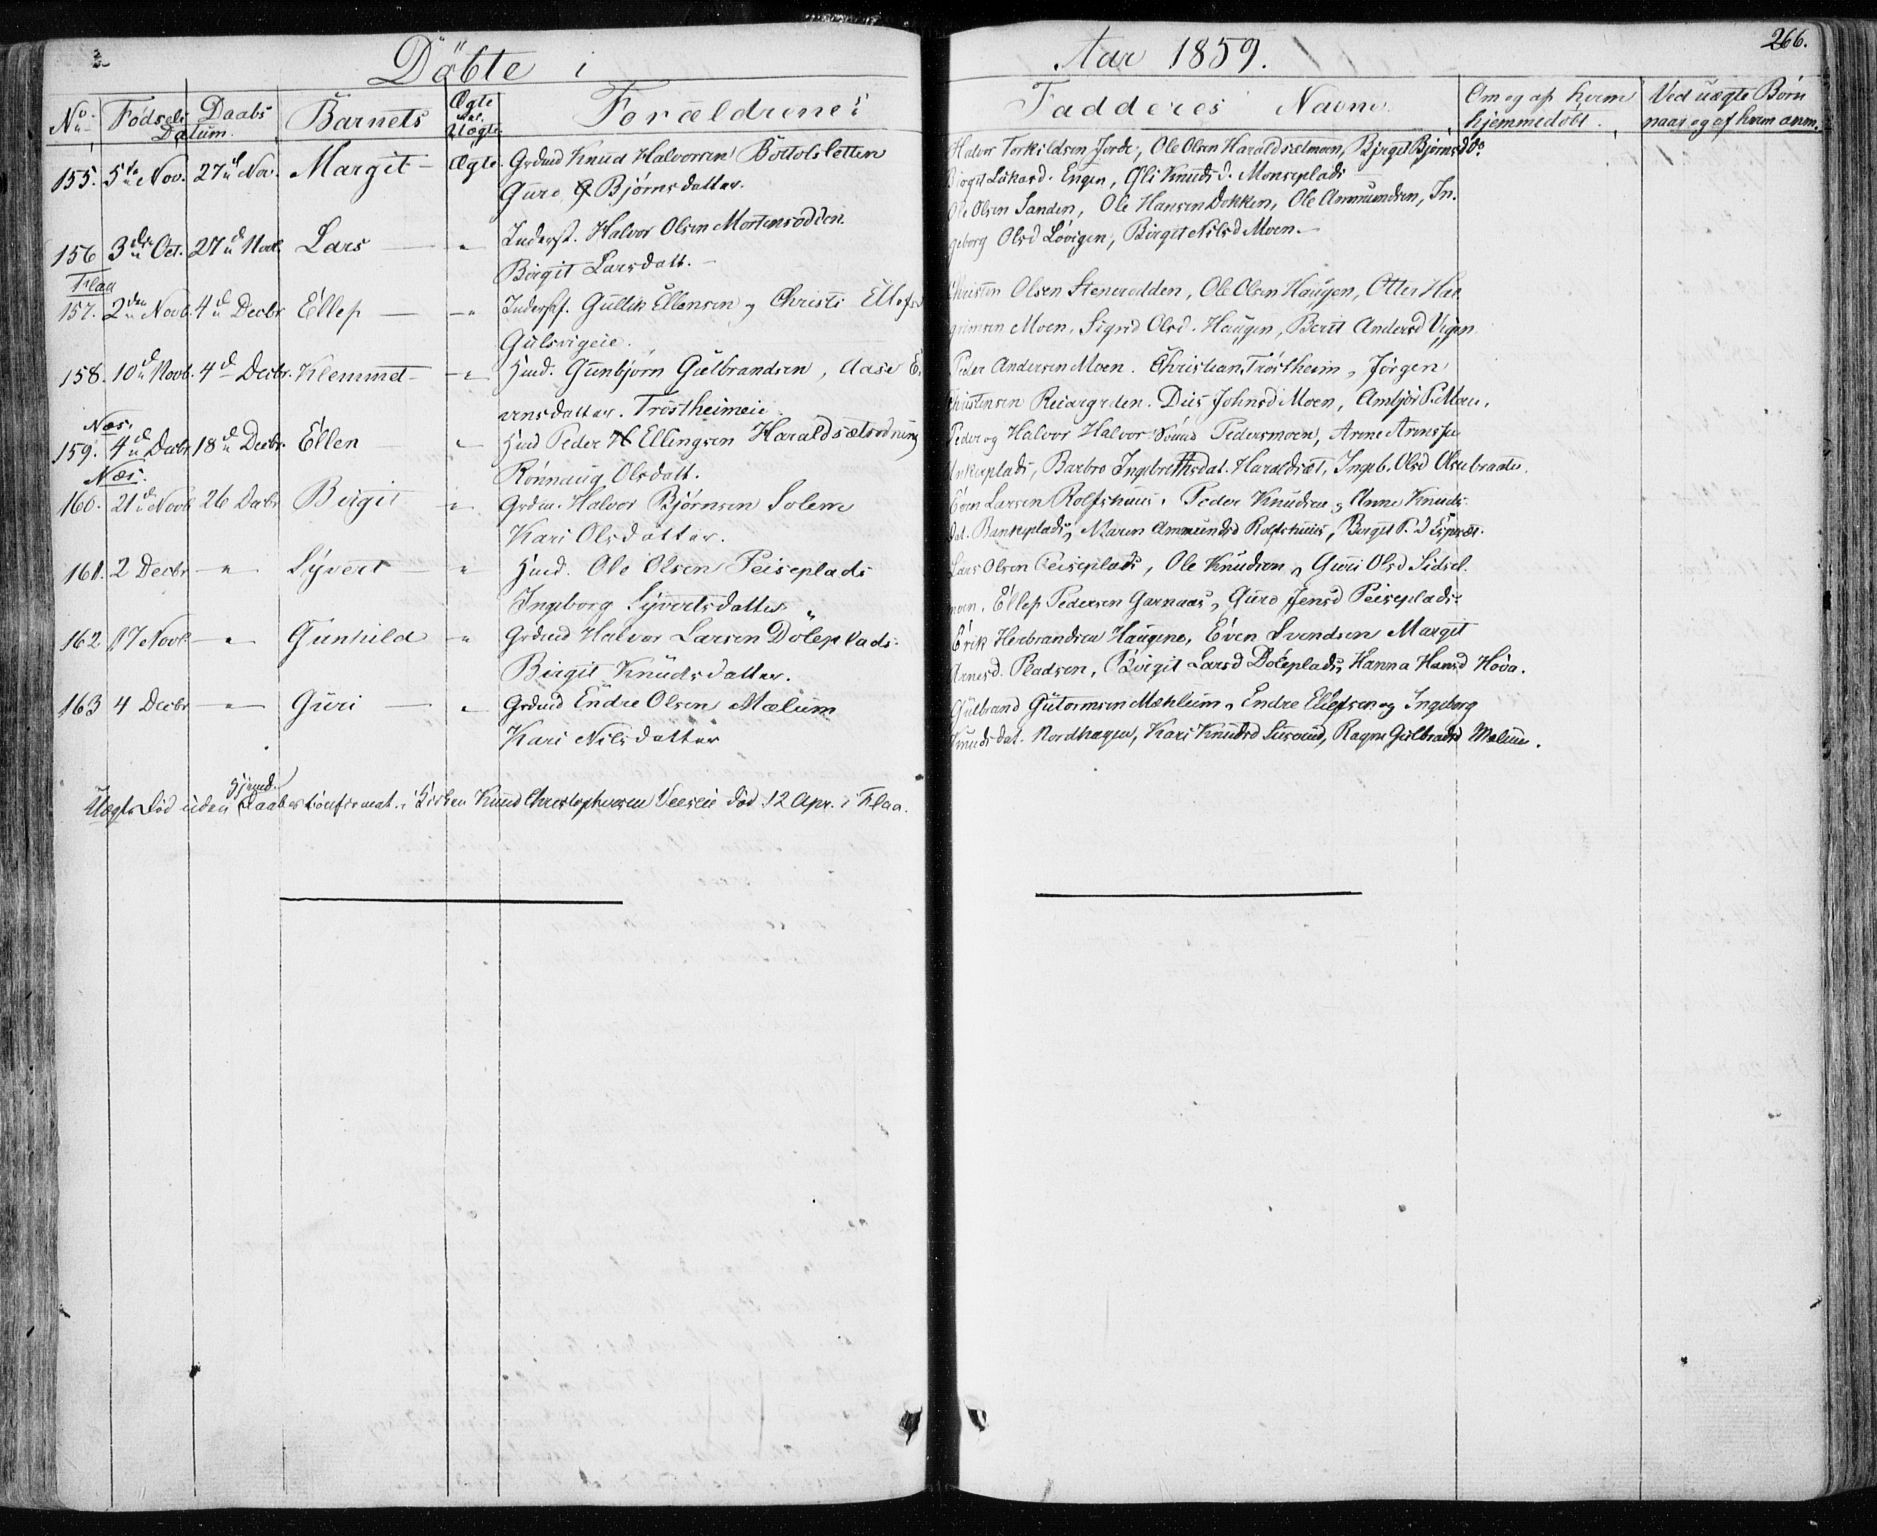 Döbte i Aar 1859. 266.
No. Födsels Daabs Datum. Barnets Ægte el. Uægte Forældrenes Fadderes Navne Om og af hvem hjemmedöbt. Ved uægte Börn naar og af hvem anm.
155. 5te Nov. 27d Nov. Margit Ægte Grdmd Knud Halvorsen Böttolsletten
Guro Bjørnsdatter.
Halvor Torkildsen Jorde, Ole Olsen Haraldsetmoen, Birgit Bjørnsd do.
Birgit Låkasd. Engen, Oli Knudsd. Monseplads
156 3die Oct. 27d Novb. Lars " Inderst. Halvor Olsen Mortensodden.
Birgit Larsdatt.
Ole Olsen Sanden, Ole Hansen Dokken, Ole Ammundsen, In-
geborg Olsd Lövigen, Birgit Nilsd Moen.
Flaa
157. 2den Novb. 4d Decbr Ellef " Inderst. Gullik Ellensen og Christi Ellefsd
Gulsvigeie.
Christen Olsen Stenerodden, Ole Olsen Haugen, Otter Hal
grimsen Moen, Sigrid Olsd. Haugen, Berit Andersd Vigen
158. 10d Novb. 4d Decbr. Klemmet " Hmd. Gunbjørn Gulbrandsen, Aase E
vensdatter. Tröstheimeie.
Peder Andersen Moen. Christian Tröstheim, Jörgen
Christensen Reiargrden. Diis Johnsd Moen, Ambjör P. Moen.
Næs.
159. 4d Decbr 18d Decbr. Ellen " Hmd Peder Ellingsen Haraldsætsødning
Rönnaug Olsdatt.
Peder og Halvor Halvor Pedersmoen, Arne Arness
plads, Barbro Ingebrethsdat. Haraldsæt, Ingeb. Olsd Olsebraate.
Næs.
160. 21d Novb 26 Decbr Birgit " Grdm. Halvor Bjørnsen Solem
Kari Olsdatter.
Even Larsen Rolfshuus, Peder Knudsen, Anne Knuds-
dat. Bankeplads, Maren Ammundsd Rolfshuus, Birgit P. d Espeset.
161. 2 Decbr " Syvert " Hmd. Ole Olsen Peiseplads
Ingeborg Syvertsdatter
Lars Olsen Peiseplads, Ole Knudsen, Guri Olsd Sidsel-
moen, Ellef Pedersen Garnaas, Guro Jensd Peiseplads
162 17 Novb " Gunhild " Grdmd Halvor Larsen Döleplads
Birgit Knudsdatter.
Erik Herbrandsen Haugene, Even Svendsen Margit
Arnesd. Pladsen, Birgit Larsd Döleplads, Hanna Hansd Hova.
163 4 Decbr " Guri " Grdmd Endre Olsen Mælum
Kari Nilsdatter
Gulbrand Gutormsen Mæhlum, Endre Ellefsen og Ingeborg
Knudsdat. Nordhagen, Kari Knudsd, Ragne Gulbrandsd Mælum.
Uægte Död uden Hjemd. Daabs Confirmat. i Kirken Knud Christophersen Veeseie död 12 Apr. i Flaa.